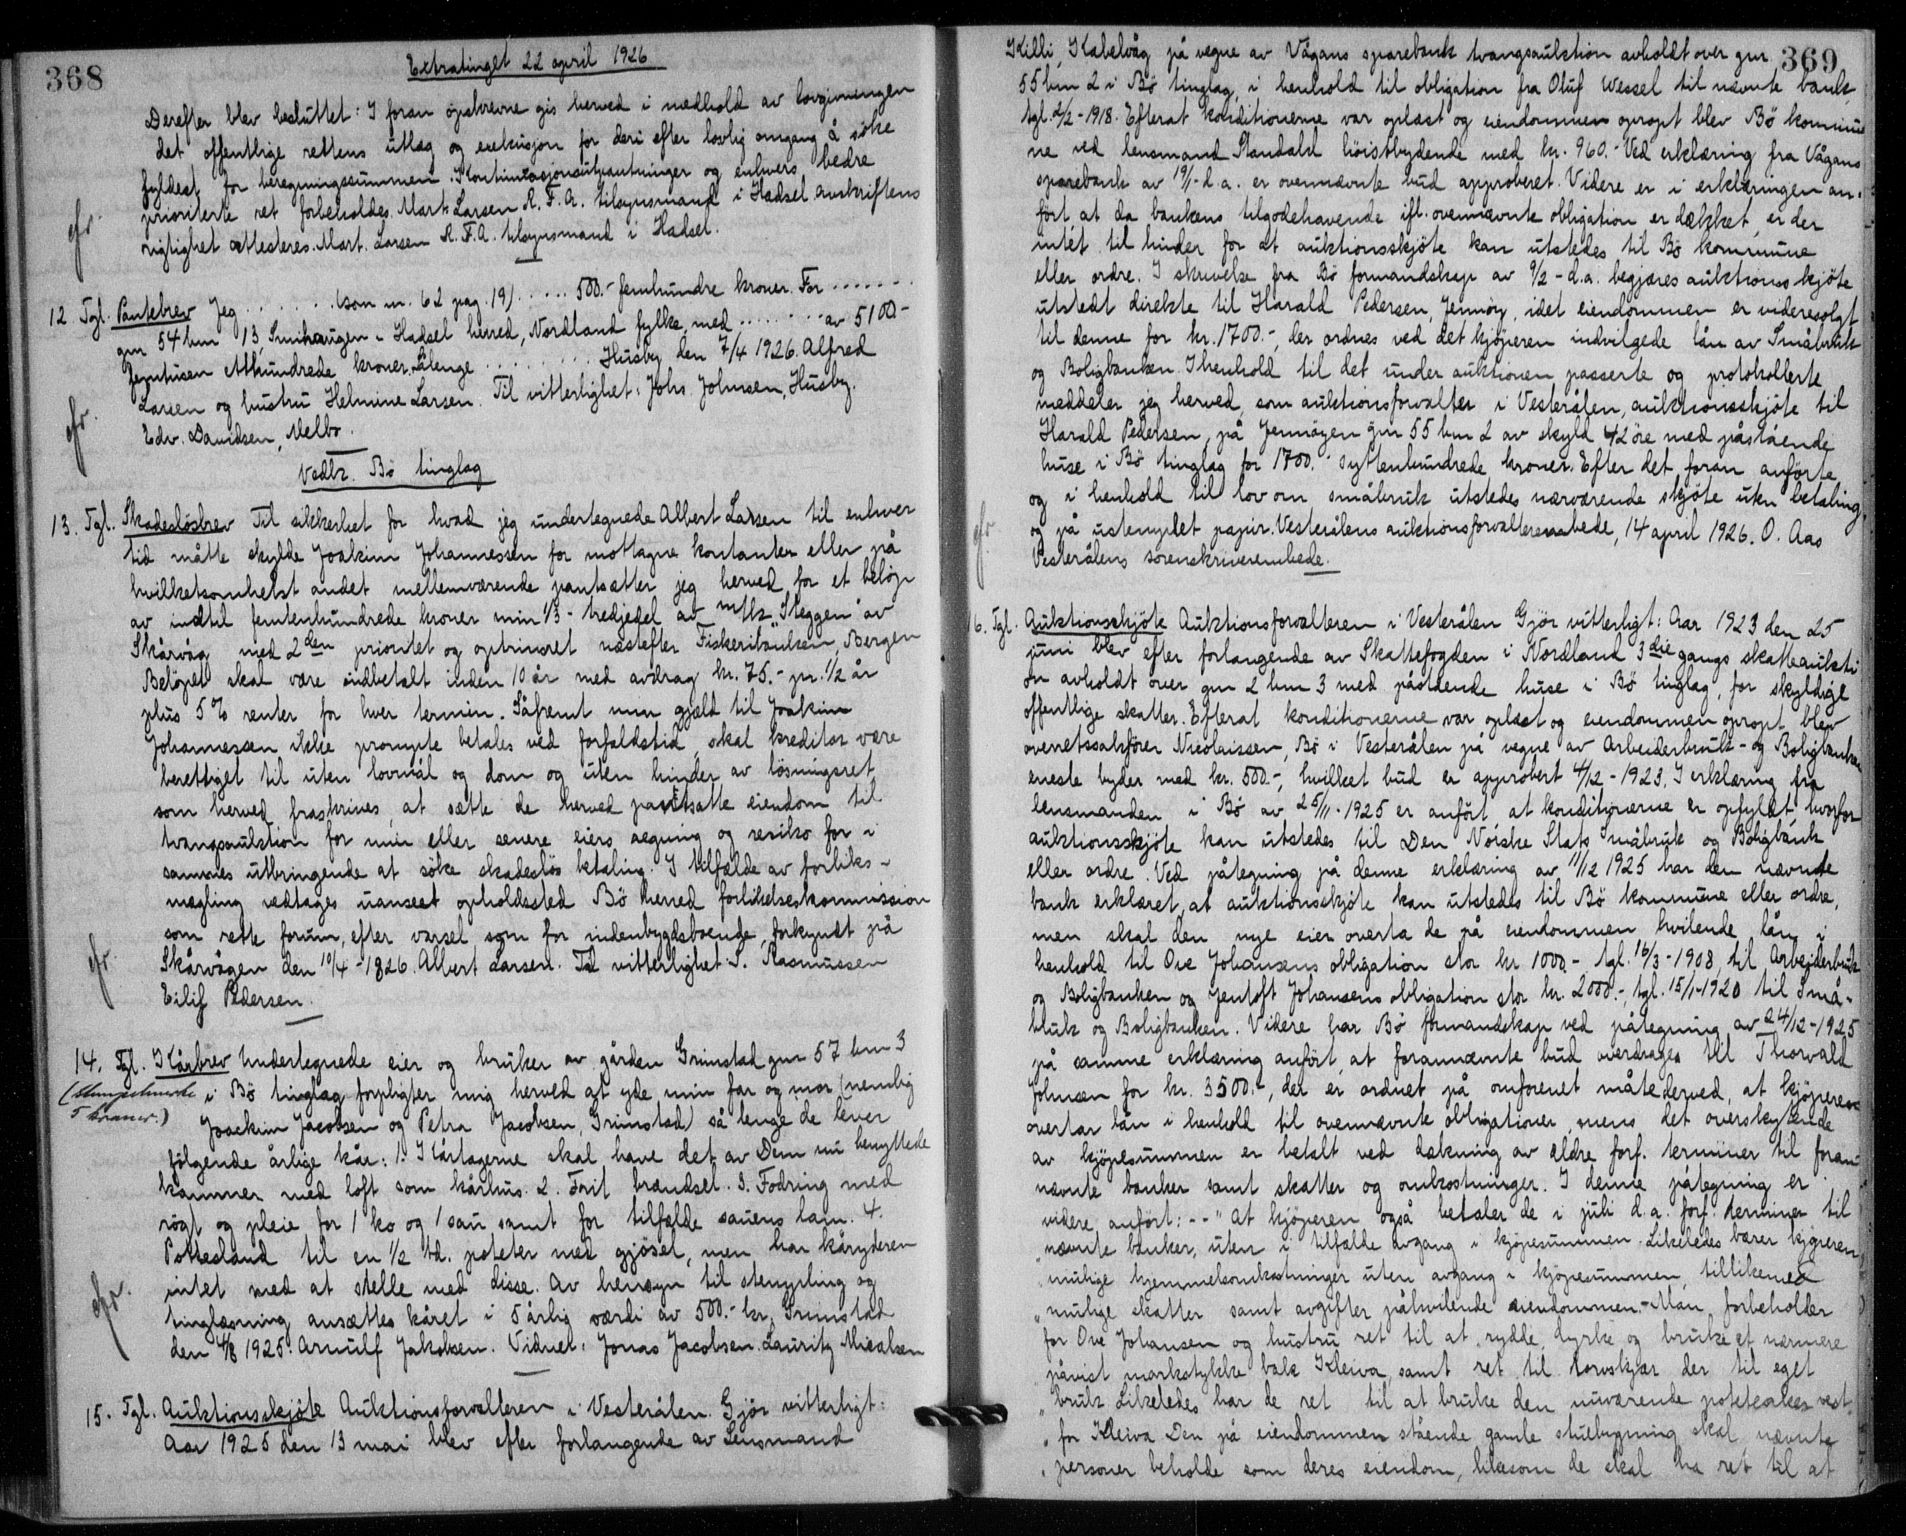 368
Extratinget 22 april 1926
Derefter blev besluttet: I foran opskrevne gis herved i medhold av lovgivningen
det offentlige rettens utlæg og eksekusjon for deri efter lovlig omgang å söke
fyldest for beregningssummen. Kontinuasjonsutpantninger og enhvers bedre
prioriterte ret forbeholdes. Mart. Larsen R. F. A. tilsynsmand i Hadsel. Avskriftens
rigtighet attesteres. Mart. Larsen R. F. A. tilsynsmand i Hadsel.
12 Tgl. Pantebrev Jeg ....... (som nr. 62 pag. 19) ..... 500.- femhundre kroner. For .......
gnr 54 bnr 13, Smihaugen i Hadsel herred, Nordland fylke, med ........ av 5100-
femtusen etthundrede kroner. Sålenge ........ Husby den 7/4 1926. Alfred
Larsen og hustru Helmine Larsen. Til vitterlighet: Johs Johnsen, Husby.
Edv. Davidsen, Melbo.
Vedk. Bö tinglag
13. Tgl. Skadeslösbrev Til sikkerhet for hvad jeg undertegnede Albert Larsen til enhver
tid måtte skylde Joakim Johannessen for mottagne kontanter eller på
hvilketsomhelst andet mellemværende pantsætter jeg herved for et belöp
av indtil femtenhundrede kroner min 1/3- tredjedel av mtk "Steggen" av
Skårvåg med 2den prioritet og optrinsret næstefter Fiskeribanken, Bergen
Belöpet skal være indbetalt inden 10 år med avdrag kr. 75.- pr. 1/2 år
plus 5% renter for hver termin. Såfremt min gjæld til Joakim
Johannessen ikke prompte betales ved forfaldstid, skal kreditor være
berettiget til uten lovmål og dom og uten hinder av lösningsret,
som herved fraskrives, at sætte de herved pantsatte eiendom til
tvangsauktion for min eller senere eiers regning og resiko for i
sammes utbringende at söke skadeslös betaling. I tilfælde av forliks-
mægling vedtages uanseet opholdssted Bö herred forlikelseskommission
som rette forum, efter varsel som for indenbygdsboende, forkyndt på
Skårvågen den 10/4-1826. Albert Larsen. Til vitterlighet: S. Rasmussen
Eilif Pedersen.
14. Tgl. Kårbrev Undertegnede eier og bruker av gården Grimstad gnr 57 bnr 3
(stempelmerke i Bö tinglag forpligter mig herved at yde min far og mor (nemlig
5 kroner.) Joackim Jacobsen og Petra Jacobsen, Grimstad) så lenge de lever
fölgende årlige kår: 1. Kårtagerne skal have det av Dem nu benyttede
kammer med loft som kårhus. 2. Frit brændsel. 3. Fodring med
rögt og pleie for 1 ko og 1 sau samt for tilfælde sauens lam. 4.
Potetesland til en 1/2 td. poteter med gjösel, men har kåryderen
intet med at stelle med disse. Av hensyn til stempling og
tinglæsning ansættes kåret i 5 årlig værdi av 500.- kr. Grimstad
den 4/8 1925. Arnulf Jakobsen. Vidner: Jonas Jacobsen. Lauritz Micalsen
15. Tgl. Auktionsskjöte Auktionsforvalteren i Vesterålen. Gjör vitterligt:
Aar 1925 den 13 mai blev efter forlangende av Lensmand
369
Killi, Kabelvåg på vegne av Vågans sparebank tvangsauktion avholdt over gnr
55 bnr 2 i Bö tinglag, i henhold til obligation fra Oluf Wessel til nævnte bank
tgl. 2/2-1918. Efterat konditionerne var oplæst og eiendommen opropt blev Bö kommu
ne ved lensmand Standahl höistbydende med kr. 960.- Ved erklæring fra Vågans
sparebank av 19/1-d.a. er ovennævnte bud approberet. Videre er i erklæringen an-
fört at da bankens tilgodehavende ifl. ovennævnte obligation er dækket, er der
intet til hinder for at auktionsskjöte kan utstedes til Bö kommune
eller ordre. I skrivelse fra Bö formandskap av 9/2-d.a. begjæres auktionsskjöte
utstedt direkte til Harald Pedersen, Jennöy, idet eiendommen er videresolgt
til denne for kr. 1700.-, der ordnes ved det kjöperen indvilgede lån av Småbruk
og Boligbanken. I henhold til det under auktionen passerte og protokollerte
meddeler jeg herved, som auktionsforvalter i Vesterålen, auktionsskjöte til
Harald Pedersen, på Jennöyen gnr 55 bnr 2 av skyld 42 öre med påstående
huse i Bö tinglag for 1700.- syttenhundrede kroner. Efter det foran anförte
og i henhold til lov om småbruk utstedes nærværende skjöte uten betaling,
og på ustemplet papir. Vesterålens auktionsforvalterembede, 14 april 1926. O. Aas
Vesterålens sorenskriverembede.
6. Tgl. Auktionsskjöte Auktionsforvalteren i Vesterålen Gjör vitterligt: Aar 1923 den 25
juni blev efter forlangende av Skattefogden i Nordland 3die gangs skatteaukti
on avholdt over gnr 2 bnr 3 med påstående huse i Bö tinglag, for skyldige
offentlige skatter. Efterat konditionerne var oplæst og eiendommen opropt, blev
overretssakförer Nicolaissen, Bö i Vesterålen på vegne av Arbeiderbruk- og Boligbanken
eneste byder med kr. 500.-, hvilket bud er approbert 4/12-1923. I erklæring fra
lensmanden i Bö av 25/11-1925 er anfört, at konditionerne er opfyldt, hvorfor
auktionsskjöte kan utstedes til Den Norske Stats Småbruk og Boligbank
eller ordre. Ved påtegning på denne erklæring av 11/12 1925 har den nævnte
bank erklæret, at auktionsskjöte kan utstedes til Bö kommune eller ordre,
men skal den nye eier overta de på eiendommen hvilende lån i
henhold til Ove Johansens obligation stor kr 1000.- tgl. 16/3-1908, til Arbeiderbruk
og Boligbanken og Jentoft Johansens obligation stor kr. 2000.- tgl. 15/1-1920 til Små-
bruk og Boligbanken. Videre har Bö formandskap ved påtegning av 24/12-1925
på samme erklæring anfört, at forannævnte bud overdrages til Thorvald
Johnsen for kr. 3500.-, det er ordnet på omforenet måte derved, at kjöperen
overtar lån i henhold til ovennævnte obligationer, mens det overskytende
av kjöpesummen er betalt ved dækning av ældre forf. terminer til foran-
nævnte banker samt skatter og omkostninger. I denne påtegning er
videre anfört: -- "at kjöperen også betaler de i juli d.a. forf. terminer til
"nævnte banker, uten i tilfælde avgang i kjöpesummen. Likeledes bærer kjöperen
"mulige hjemmelsomkostninger uten avgang i kjöpesummen, tillikemed
"mulige skatter samt avgifter påhvilende eiendommen.- Man forbeholder
for Ove Johansen og hustru ret til at rydde, dyrke og bruke et nærmere
påvist markstykke bak Kleiva, samt ret til torvskjær der til eget
"bruk. Likeledes har de ret til at bruke den nuværende potetaker vest
"for Kleiva. Den på eiendommen stående gamle stuebygning skal nævnte
"personer beholde som deres eiendom, likesom de skal ha ret til at